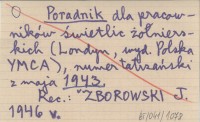 O Poradnik dla pracow-
ników świetlic żołniers-
kich (Londyn, wyd. Polska
YMCA), numer tatrzański
z maja 1943.
Rec.: ZBOROWSKI J.
1946 r.